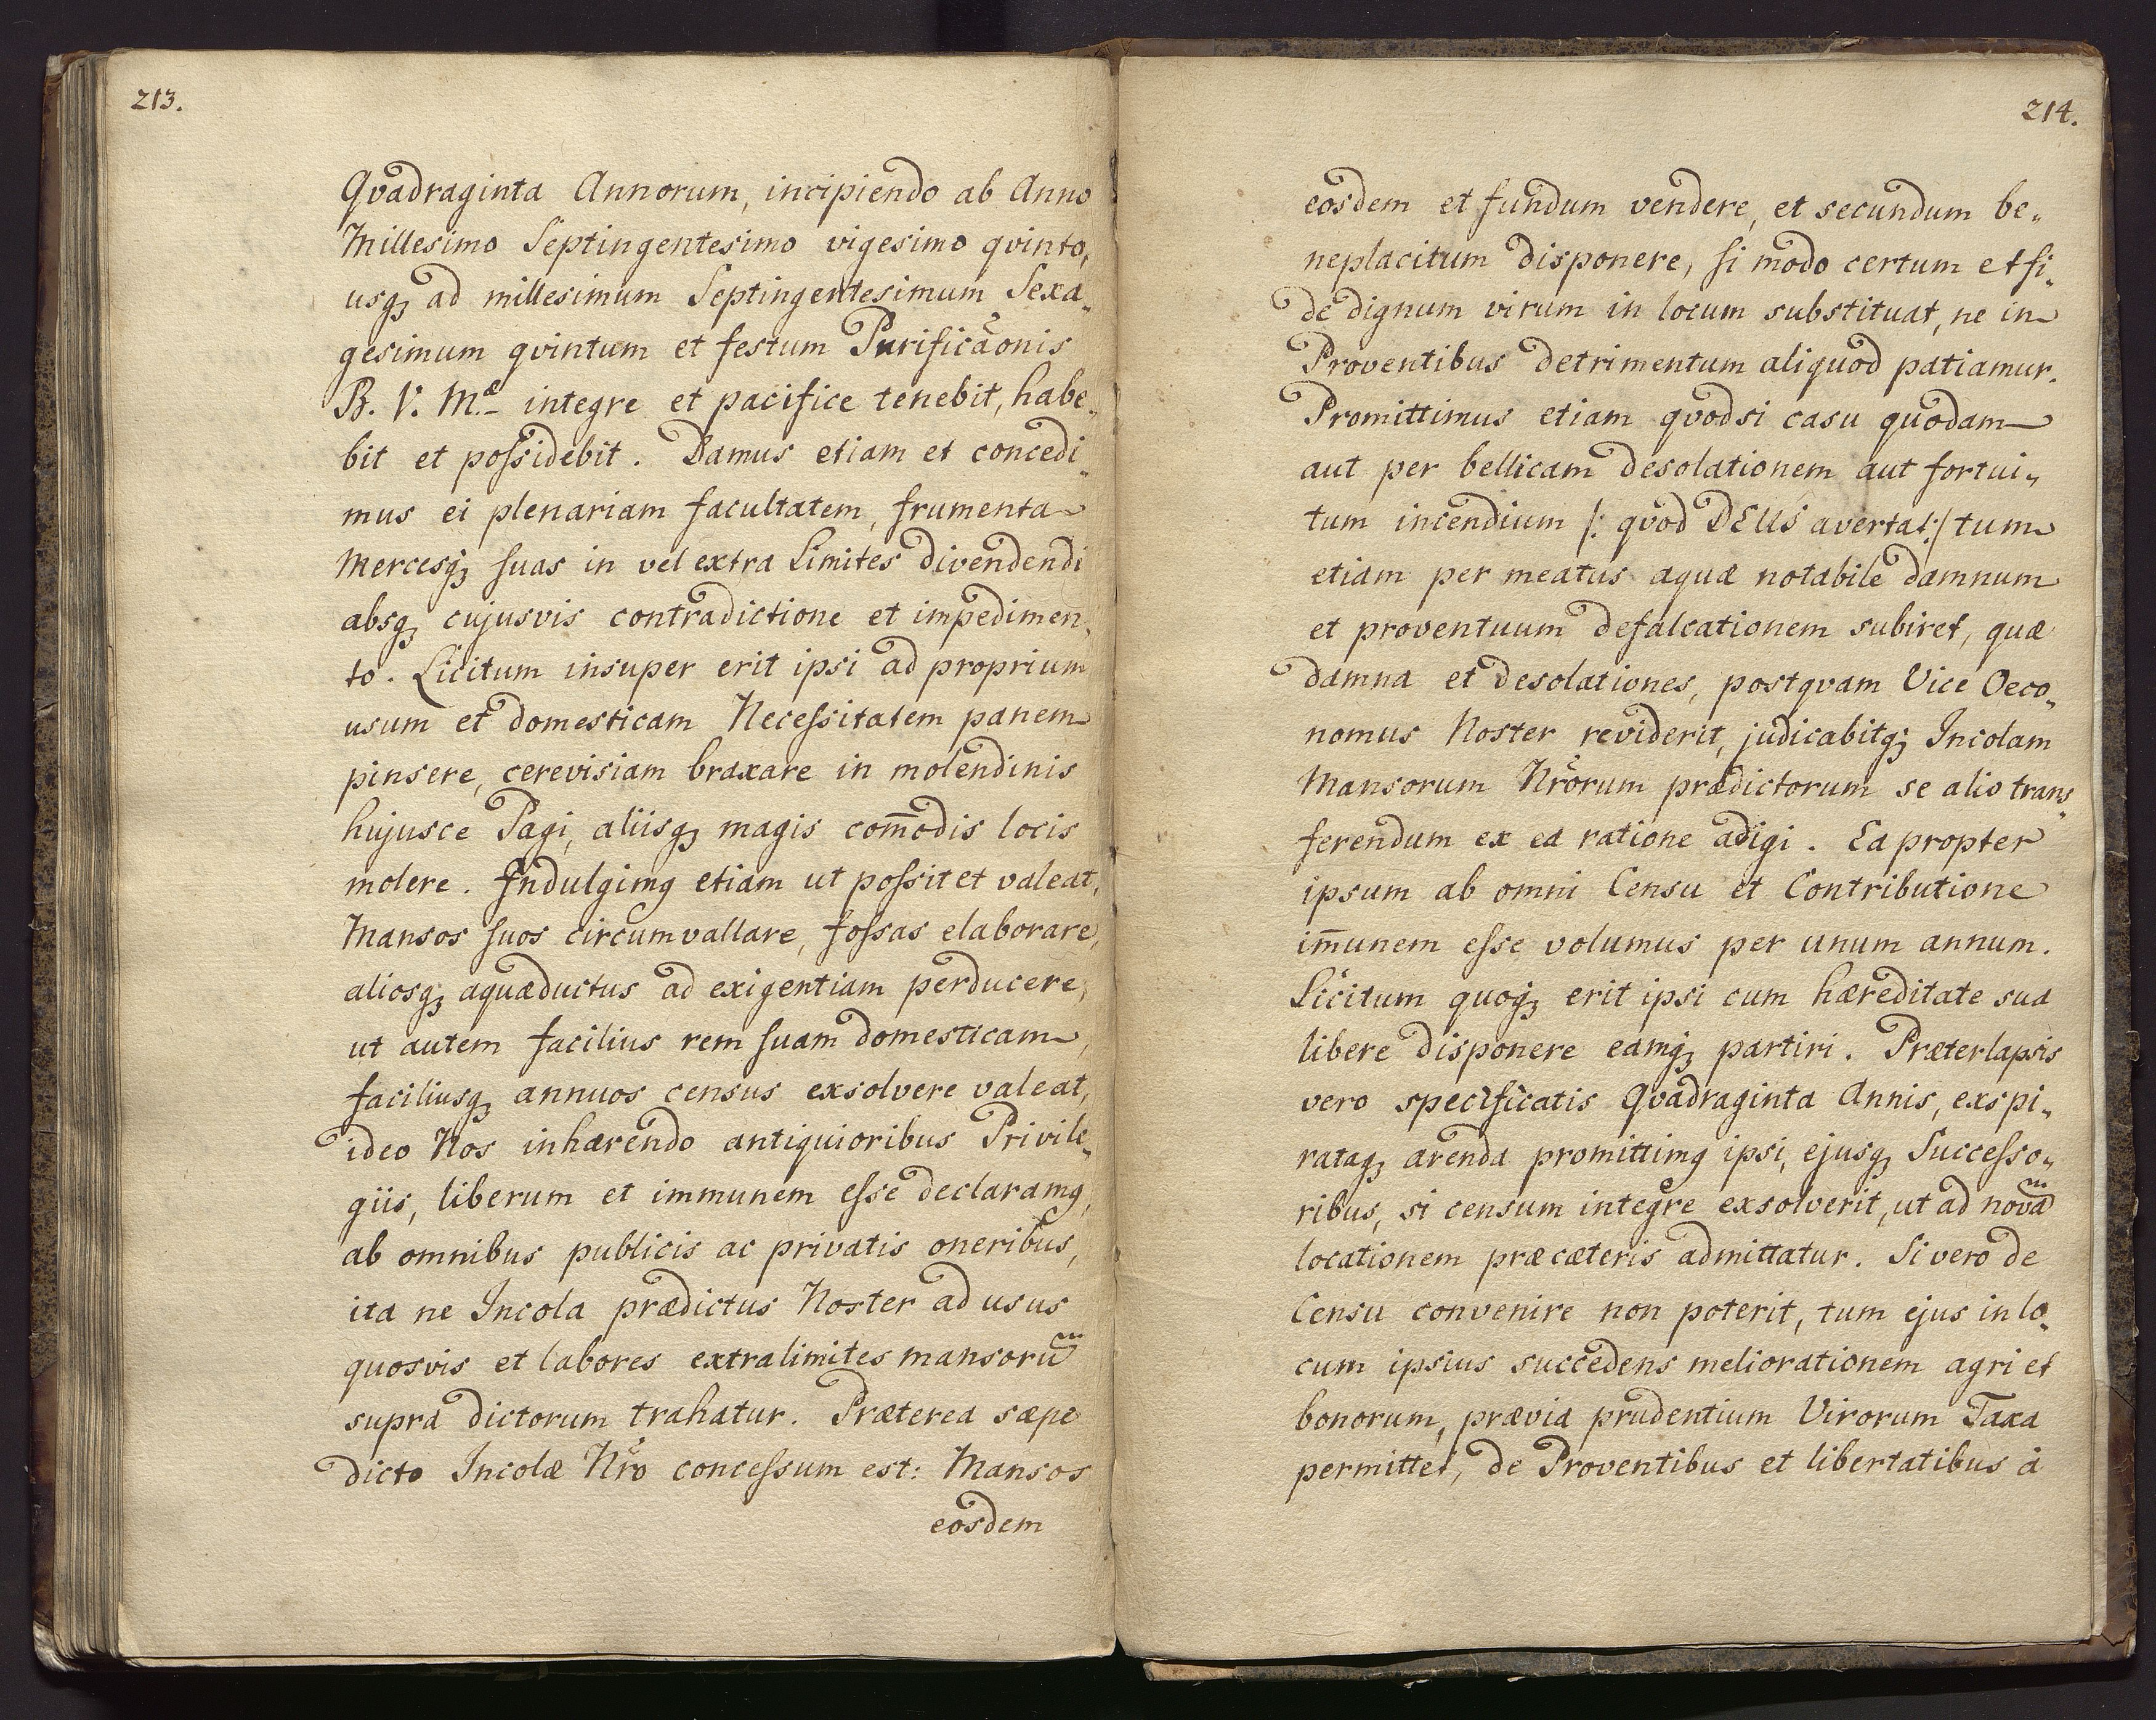 213.
Qvadraginta Annorum, incipiendo ab Anno
Millesimo Septingentesimo vigesimo qvinto,
usq3 ad millesimum Septingentesimum Sexa„
gesimum qvintum et festum Purificãonis
B. V. M.æ integre et pacifice tenebit, habe„
bit et poſsidebit. Damus etiam et concedi„
mus ei plenariam facultatem, frumenta
Mercesq3 suas in vel extra Limites divendendi
absq3 cujusvis contradictione et impedimen„
to. Licitum insuper erit ipsi ad proprium
usum et domesticam Neceſsitatem panem
pinsere, cerevisiam braxare in molendinis
hujusce Pagi, aliisq3 magis com̄odis locis
molere. Indulgimq etiam ut poſsit et valeat,
Mansos suos circumvallare, foſsas elaborare,
aliosq3 aquæductus ad exigentiam perducere,
ut autem facilius rem suam domesticam,
faciliusq3 annuos census exsolvere valeat,
ideo Nos inhærendo antiquioribus Privile„
giis, liberum et immunem eſse declaramq,
ab omnibus publicis ac privatis oneribus,
ita ne Incola prædictus Noster ad usus
quosvis et labores extralimites mansorum̃
supra dictorum trahatur. Præterea sæpe
dicto Incolæ Nr̃o conceſsum est: Mansos
eosdem
214.
eosdem et fundum vendere, et secundum be„
neplacitum disponere, si modo certum et fi„
de dignum virum in locum substituat, ne in
Proventibus detrimentum aliquod patiamur.
Promittimus etiam qvodsi casu quodam
aut per bellicam desolationem aut fortui„
tum incendium /: qvod DEUS avertat :/ tum
etiam per meatus aquæ notabile damnum
et proventuum defalcationem subiret, quæ
damna et desolationes, postqvam Vice Oeco„
nomus Noster reviderit, judicabitq3 Incolam
Mansorum Nr̃orum prædictorum se alio trans„
ferendum ex ea ratione adigi. Ea propter
ipsum ab omni Censu et Contributione
im̄unem eſse volumus per unum annum.
Licitum quoq3 erit ipsi cum hæreditate sua
libere disponere eamq3 partiri. Præterlapsis
vero specificatis Qvadraginta Annis, exspi„
rataq3 arenda promittimq ipsi, ejusq3 Succeſso„
ribus, si censum integre exsolverit, ut ad novam̃
locationem præcæteris admittatur. Si vero de
Censu convenire non poterit, tum ejus in lo„
cum ipsius succedens meliorationem agri et
bonorum, prævia prudentium Virorum Taxa
permittet, de Proventibus et libertatibus à